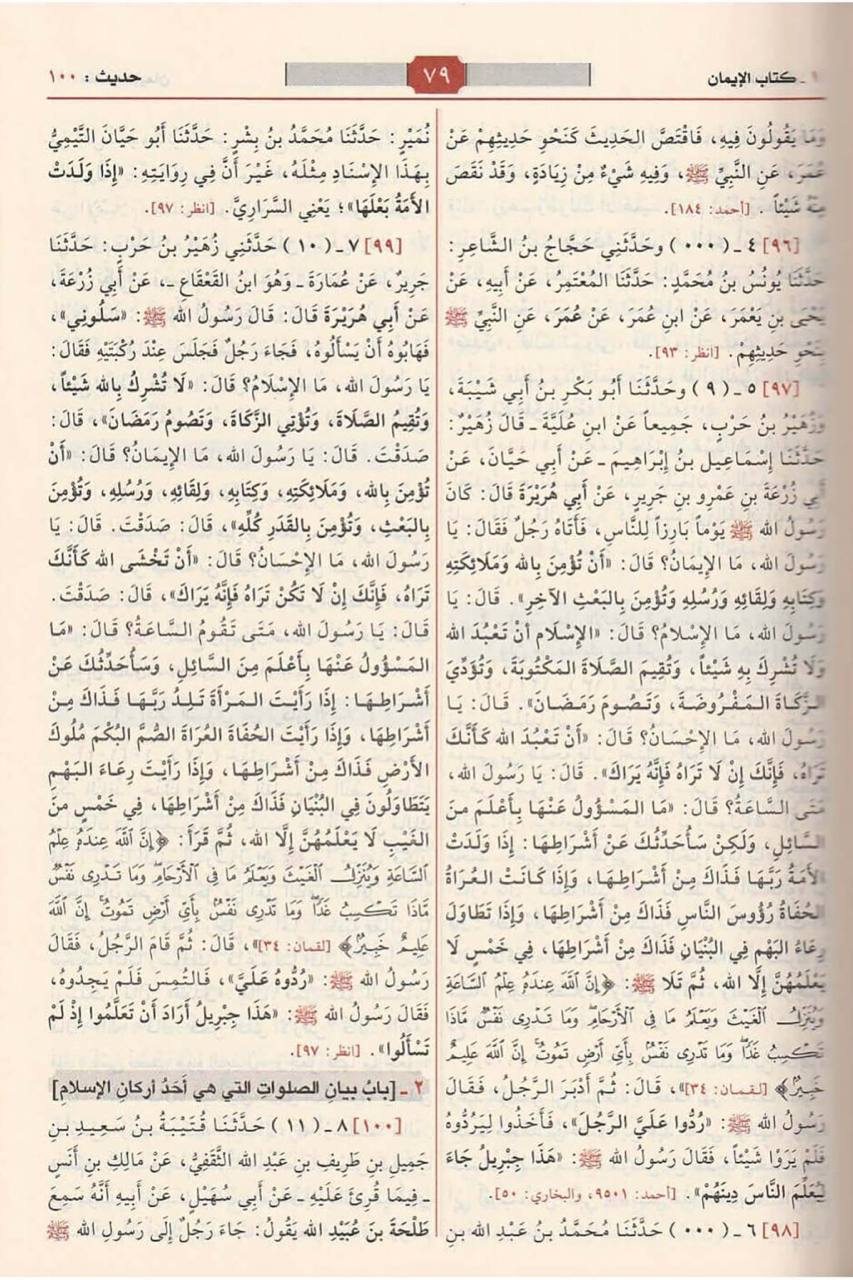 ١ ـ كتاب الإيمان
٧٩
حديث : ١٠٠
وَمَا يَقُولُونَ فِيهِ، فَاقْتَصَّ الحَدِيثَ كَنَحْوِ حَدِيثِهِمْ عَنْ
عُمَرَ، عَنِ النَّبِيِّ ﷺ، وَفِيهِ شَيْءٌ مِنْ زِيَادَةٍ، وَقَدْ نَقَصَ
مِنْهُ شَيْئاً . [أحمد: ١٨٤].
[٩٦] ٤ ـ ( ٠٠٠ ) وحَدَّثَنِي حَجَّاجُ بنُ الشَّاعِرِ:
حَدَّثَنَا يُونُسُ بنُ مُحَمَّدٍ: حَدَّثَنَا المُعْتَمِرُ، عَنْ أَبِيهِ، عَنْ
يَحْيَى بنِ يَعْمَرَ، عَنِ ابنِ عُمَرَ، عَنْ عُمَرَ، عَنِ النَّبِيِّ ﷺ
بِنَحْوِ حَدِيثِهِمْ. [انظر: ٩٣].
[٩٧] ٥ ـ ( ٩ ) وحَدَّثَنَا أَبُو بَكْرِ بنُ أَبِي شَيْبَةَ،
وَزُهَيْرُ بنُ حَرْبٍ، جَمِيعاً عَنِ ابنِ عُلَيَّةَ ـ قَالَ زُهَيْرٌ:
حَدَّثَنَا إِسْمَاعِيل بنُ إِبْرَاهِيمَ ـ عَنْ أَبِي حَيَّانَ، عَنْ
أَبِي زُرْعَةَ بنِ عَمْرِو بنِ جَرِيرٍ، عَنْ أَبِي هُرَيْرَةَ قَالَ: كَانَ
رَسُولُ الله ﷺ يَوْماً بَارِزاً لِلنَّاسِ، فَأَتَاهُ رَجُلٌ فَقَالَ: يَا
رَسُولَ الله، مَا الإِيمَانُ؟ قَالَ: «أَنْ تُؤْمِنَ بِالله وَمَلَائِكَتِهِ
وَكِتَابِهِ وَلِقَائِهِ وَرُسُلِهِ وَتُؤْمِنَ بِالبَعْثِ الآخِرِ». قَالَ: يَا
رَسُولَ الله، مَا الإِسْلَامُ؟ قَالَ: «الإِسْلَام أَنْ تَعْبُدَ الله
وَلَا تُشْرِكَ بِهِ شَيْئاً، وَتُقِيمَ الصَّلَاةَ المَكْتُوبَةَ، وَتُؤَدِّيَ
الزَّكَاةَ المَفْرُوضَةَ، وَتَصُومَ رَمَضَانَ». قَالَ: يَا
رَسُولَ الله، مَا الإِحْسَانُ؟ قَالَ: «أَنْ تَعْبُدَ الله كَأَنَّكَ
تَرَاهُ، فَإِنَّكَ إِنْ لَا تَرَاهُ فَإِنَّهُ يَرَاكَ». قَالَ: يَا رَسُولَ الله،
مَتَى السَّاعَةُ؟ قَالَ: «مَا المَسْؤُولُ عَنْهَا بِأَعْلَمَ مِنَ
السَّائِلِ، وَلَكِنْ سَأُحَدِّثُكَ عَنْ أَشْرَاطِهَا: إِذَا وَلَدَتْ
الأَمَةُ رَبَّهَا فَذَاكَ مِنْ أَشْرَاطِهَا، وَإِذَا كَانَتْ العُرَاةُ
الحُفَاةُ رُؤُوسَ النَّاسِ فَذَاكَ مِنْ أَشْرَاطِهَا، وَإِذَا تَطَاوَلَ
رِعَاءُ البَهْمِ فِي البُنْيَانِ فَذَاكَ مِنْ أَشْرَاطِهَا، فِي خَمْسٍ لَا
يَعْلَمُهُنَّ إِلَّا الله، ثُمَّ تَلَا ﷺ: ﴿إِنَّ ٱللَّهَ عِندَهُۥ عِلْمُ ٱلسَّاعَةِ
وَيُنَزِّلُ ٱلْغَيْثَ وَيَعْلَمُ مَا فِى ٱلْأَرْحَامِ وَمَا تَدْرِى نَفْسٌ مَّاذَا
تَكْسِبُ غَدًا وَمَا تَدْرِى نَفْسٌۢ بِأَىِّ أَرْضٍ تَمُوتُ إِنَّ ٱللَّهَ عَلِيمٌ
خَبِيرٌۢ﴾ [لقمان: ٣٤]»، قَالَ: ثُمَّ أَدْبَرَ الرَّجُلُ، فَقَالَ
رَسُولُ الله ﷺ: «رُدُّوا عَلَيَّ الرَّجُلَ»، فَأَخَذُوا لِيَرُدُّوهُ
فَلَمْ يَرَوْا شَيْئاً، فَقَالَ رَسُولُ الله ﷺ: «هَذَا جِبْرِيلُ جَاءَ
لِيُعَلِّمَ النَّاسَ دِينَهُمْ». [أحمد: ٩٥٠١، والبخاري: ٥٠].
[٩٨] ٦ ـ ( ٠٠٠ ) حَدَّثَنَا مُحَمَّدُ بنُ عَبْدِ الله بنِ
نُمَيْرٍ: حَدَّثَنَا مُحَمَّدُ بنُ بِشْرٍ: حَدَّثَنَا أَبُو حَيَّانَ التَّيْمِيُّ
بِهَذَا الإِسْنَادِ مِثْلَهُ، غَيْرَ أَنَّ فِي رِوَايَتِهِ: «إِذَا وَلَدَتْ
الأَمَةُ بَعْلَهَا»؛ يَعْنِي السَّرَارِيَّ. [انظر: ٩٧].
[٩٩] ٧ ـ ( ١٠ ) حَدَّثَنِي زُهَيْرُ بنُ حَرْبٍ: حَدَّثَنَا
جَرِيرٌ، عَنْ عُمَارَةَ ـ وَهُوَ ابنُ القَعْقَاعِ ـ، عَنْ أَبِي زُرْعَةَ،
عَنْ أَبِي هُرَيْرَةَ قَالَ: قَالَ رَسُولُ الله ﷺ: «سَلُونِي»،
فَهَابُوهُ أَنْ يَسْأَلُوهُ، فَجَاءَ رَجُلٌ فَجَلَسَ عِنْدَ رُكْبَتَيْهِ فَقَالَ:
يَا رَسُولَ الله، مَا الإِسْلَامُ؟ قَالَ: «لَا تُشْرِكُ بِالله شَيْئاً،
وَتُقِيمُ الصَّلَاةَ، وَتُؤْتِي الزَّكَاةَ، وَتَصُومُ رَمَضَانَ»، قَالَ:
صَدَقْتَ. قَالَ: يَا رَسُولَ الله، مَا الإِيمَانُ؟ قَالَ: «أَنْ
تُؤْمِنَ بِالله، وَمَلَائِكَتِهِ، وَكِتَابِهِ، وَلِقَائِهِ، وَرُسُلِهِ، وَتُؤْمِنَ
بِالبَعْثِ، وَتُؤْمِنَ بِالقَدَرِ كُلِّهِ»، قَالَ: صَدَقْتَ. قَالَ: يَا
رَسُولَ الله، مَا الإِحْسَانُ؟ قَالَ: «أَنْ تَخْشَى الله كَأَنَّكَ
تَرَاهُ، فَإِنَّكَ إِنْ لَا تَكُنْ تَرَاهُ فَإِنَّهُ يَرَاكَ»، قَالَ: صَدَقْتَ.
قَالَ: يَا رَسُولَ الله، مَتَى تَقُومُ السَّاعَةُ؟ قَالَ: «مَا
المَسْؤُولُ عَنْهَا بِأَعْلَمَ مِنَ السَّائِلِ، وَسَأُحَدِّثُكَ عَنْ
أَشْرَاطِهَا: إِذَا رَأَيْتَ المَرْأَةَ تَلِدُ رَبَّهَا فَذَاكَ مِنْ
أَشْرَاطِهَا، وَإِذَا رَأَيْتَ الحُفَاةَ العُرَاةَ الصُّمَّ البُكْمَ مُلُوكَ
الأَرْضِ فَذَاكَ مِنْ أَشْرَاطِهَا، وَإِذَا رَأَيْتَ رِعَاءَ البَهْمِ
يَتَطَاوَلُونَ فِي البُنْيَانِ فَذَاكَ مِنْ أَشْرَاطِهَا، فِي خَمْسٍ مِنَ
الغَيْبِ لَا يَعْلَمُهُنَّ إِلَّا الله، ثُمَّ قَرَأَ: ﴿إِنَّ ٱللَّهَ عِندَهُۥ عِلْمُ
ٱلسَّاعَةِ وَيُنَزِّلُ ٱلْغَيْثَ وَيَعْلَمُ مَا فِى ٱلْأَرْحَامِ وَمَا تَدْرِى نَفْسٌ
مَّاذَا تَكْسِبُ غَدًا وَمَا تَدْرِى نَفْسٌۢ بِأَىِّ أَرْضٍ تَمُوتُ إِنَّ ٱللَّهَ
عَلِيمٌ خَبِيرٌۢ﴾ [لقمان: ٣٤]»، قَالَ: ثُمَّ قَامَ الرَّجُلُ، فَقَالَ
رَسُولُ الله ﷺ: «رُدُّوهُ عَلَيَّ»، فَالتُمِسَ فَلَمْ يَجِدُوهُ،
فَقَالَ رَسُولُ الله ﷺ: «هَذَا جِبْرِيلُ أَرَادَ أَنْ تَعَلَّمُوا إِذْ لَمْ
تَسْأَلُوا». [انظر: ٩٧].
٢ ـ [بابُ بيانِ الصلواتِ التي هي أَحَدُ أركانِ الإسلامِ]
[١٠٠] ٨ ـ ( ١١ ) حَدَّثَنَا قُتَيْبَةُ بنُ سَعِيدِ بنِ
جَمِيلِ بنِ طَرِيفِ بنِ عَبْدِ الله الثَّقَفِيُّ، عَنْ مَالِكِ بنِ أَنَسٍ
ـ فِيمَا قُرِئَ عَلَيْهِ ـ عَنْ أَبِي سُهَيْلٍ، عَنْ أَبِيهِ أَنَّهُ سَمِعَ
طَلْحَةَ بنَ عُبَيْدِ الله يَقُولُ: جَاءَ رَجُلٌ إِلَى رَسُولِ الله ﷺ